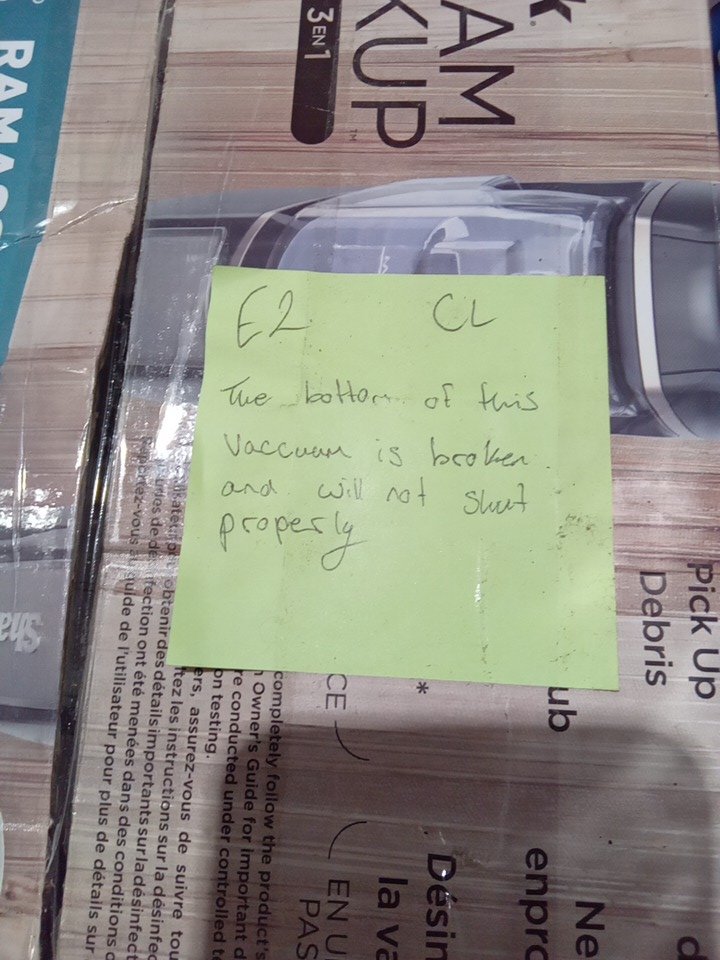 E2 CL
The bottom of this
Vaccuum is broken
and will not shut
properly
AM
KUP™
3 EN 1
RAMA
Sha
Pick Up
Debris
ub
*
CE
completely follow the product's
Owner's Guide for important d
re conducted under controlled t
on testing.
ers, assurez-vous de suivre tou
tez les instructions sur la désinfec
obtenir des détails importants sur la désinfect
fection ont été menées dans des conditions c
guide de l'utilisateur pour plus de détails sur
EN U
PAS
Désin
la va
enpro
Ne
d